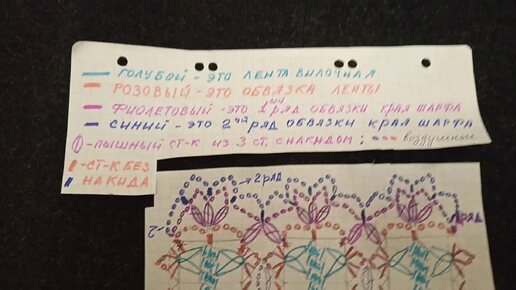 ГОЛУБОЙ - ЭТО ЛЕНТА ВИЛОЧНАЯ
РОЗОВЫЙ - ЭТО ОБВЯЗКА ЛЕНТЫ
ФИОЛЕТОВЫЙ - ЭТО 1ЫЙ РЯД ОБВЯЗКИ КРАЯ ШАРФА
СИНИЙ - ЭТО 2ОЙ РЯД ОБВЯЗКИ КРАЯ ШАРФА
- ПЫШНЫЙ СТ-К ИЗ 3 СТ. С НАКИДОМ; - воздушные
- СТ-К БЕЗ
НАКИДА
2 ряд
1 ряд
2